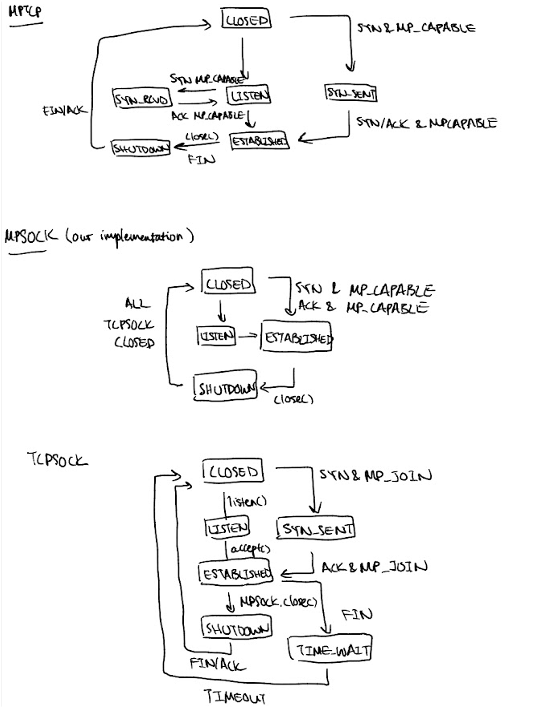 MPTCP
CLOSED
SYN & MP_CAPABLE
SYN MP_CAPABLE
SYN_RCVD
LISTEN
SYN_SENT
FIN/ACK
ACK MP_CAPABLE
SYN/ACK & MPCAPABLE
close()
SHUTDOWN
ESTABLISHED
FIN
MPSOCK (our implementation)
CLOSED
SYN & MP_CAPABLE
ACK & MP_CAPABLE
ALL
TCPSOCK
CLOSED
LISTEN
ESTABLISHED
SHUTDOWN
close()
TCPSOCK
CLOSED
SYN & MP_JOIN
listen()
LISTEN
SYN_SENT
accept()
ESTABLISHED
ACK & MP_JOIN
MPSOCK.close()
FIN
SHUTDOWN
TIME_WAIT
FIN/ACK
TIMEOUT